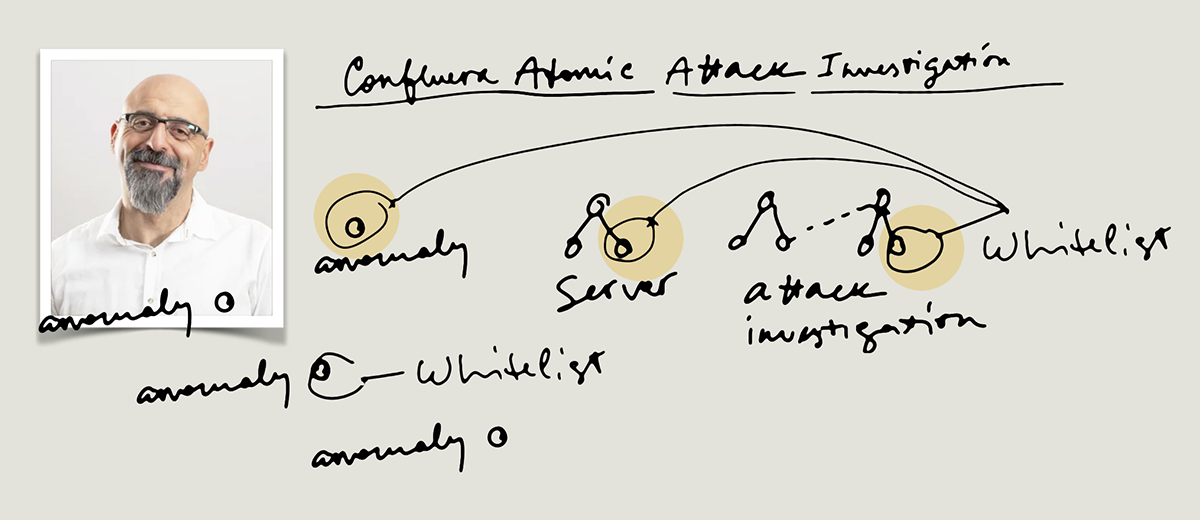 Confluera Atomic Attack Investigation
anomaly
Server
attack
investigation
Whitelist
anomaly
anomaly
Whitelist
anomaly